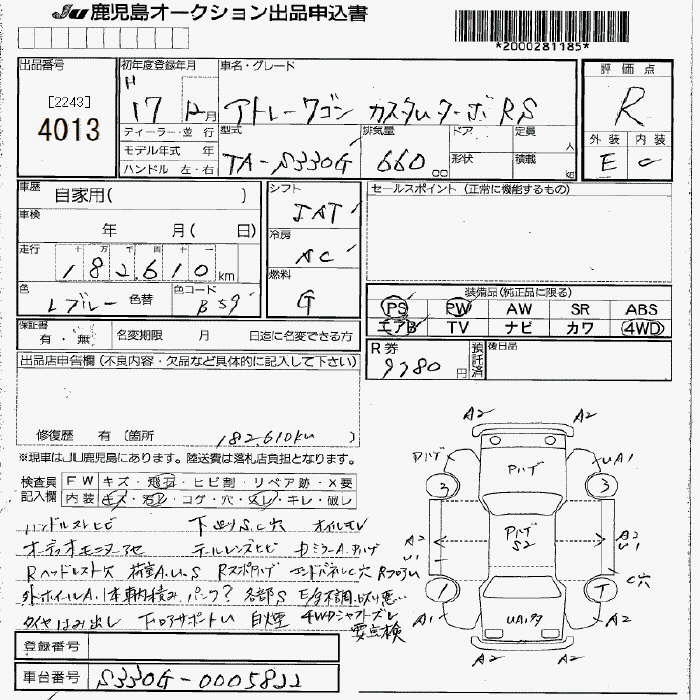 JU 鹿児島オークション出品申込書
*2000281185*
出品番号
[2243]
4013
初年度登録年月
H 17 12月
車名・グレード
アトレーワゴン カスタムターボ RS
評価点
R
外装 内装
E C
ディーラー・並行
モデル年式 年
ハンドル 左・右
型式
TA-S330G
排気量
660 cc
ドア
形状
定員 人
積載 kg
車歴
自家用( )
車検
年 月( 日)
走行
十 万 千 百 十 一
182,610 km
色
Lブルー 色替
色コード
B59
シフト
IAT
冷房
AC
燃料
G
セールスポイント (正常に機能するもの)
装備品(純正品に限る)
PS PW AW SR ABS
エアB TV ナビ カワ 4WD
保証書
有・無
名変期限 月 日迄に名変できる方
R券
9780 円
預託済
後日品
出品店申告欄(不良内容・欠品など具体的に記入して下さい)
修復歴 有 〔箇所 182,610km )
※現車はJU鹿児島にあります。陸送費は落札店負担となります。
検査員記入欄
FW キズ・飛石・ヒビ割・リペア跡・×要
内装 キズ・汚レ・コゲ・穴・スレ・キレ・破レ
ハンドルスレヒビ 下廻りS.C穴 オイルモレ
オーディオモニター テールレンズヒビ
Rヘッドレスト欠 荷室A.U.S
外ホイールA. 1本車内積み パンク? 各部S E/G不調
タイヤはみ出し 下ロアサポートU 白煙 4WDシャフトズレ
要点検
登録番号
車台番号
S330G-0005822
A2
A2
Pハゲ
Pハゲ
UA1
3
3
Pハゲ
S2
A2
U1
A2
U1
C穴
1
T
A1
UA1
A2
A2
A2